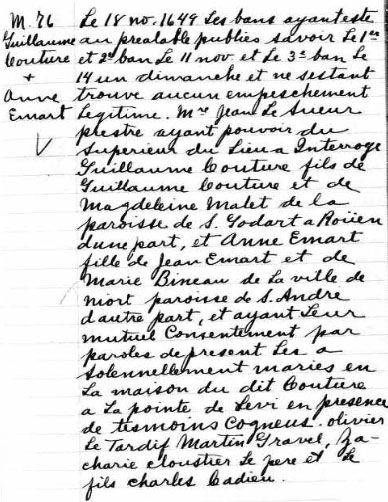 M. 76
Guillaume
Couture
+
Anne
Emart
V
Le 18 no. 1649 Les bans ayant este
au prealable publies savoir Le 1er
et 2d ban Le 11 nov et Le 3e ban Le
14 un dimanche et ne sestant
trouve aucun empeschement
Legitime. Mre Jean Le Sueur
prestre ayant pouvoir du
Superieur du Lieu a Interroge
Guillaume Couture fils de
Guillaume Couture et de
Magdeleine Malet de la
paroisse de S. Godart a Roüen
dune part, et Anne Emart
fille de Jean Emart et de
Marie Bineau de La ville de
niort paroisse de S. André
d'autre part, et ayant Leur
mutuel Consentement par
paroles de present Les a
Solennellement maries en
La maison du dit Couture
a La pointe de Levi en presence
de tesmoins Cogneus. olivier
Le Tardif Martin Gravel, Za-
charie cloustier Le pere et Le
fils charles Cadieu.